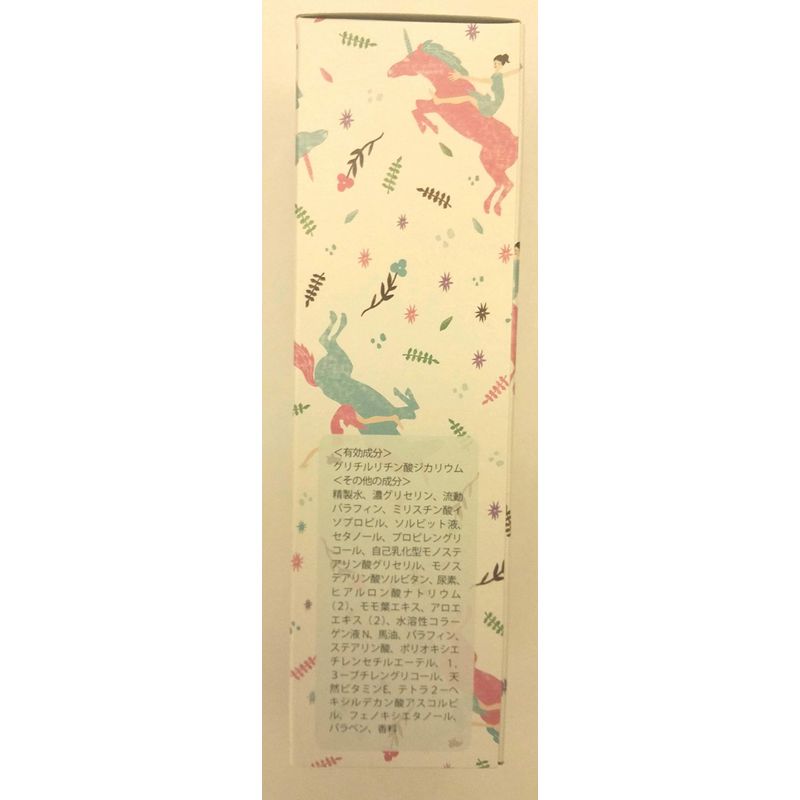 ＜有効成分＞
グリチルリチン酸ジカリウム
＜その他の成分＞
精製水、濃グリセリン、流動
パラフィン、ミリスチン酸イ
ソプロピル、ソルビット液、
セタノール、プロピレングリ
コール、自己乳化型モノステ
アリン酸グリセリル、モノス
テアリン酸ソルビタン、尿素、
ヒアルロン酸ナトリウム
（2）、モモ葉エキス、アロエ
エキス（2）、水溶性コラー
ゲン液N、馬油、パラフィン、
ステアリン酸、ポリオキシエ
チレンセチルエーテル、1，
3－ブチレングリコール、天
然ビタミンE、テトラ2－ヘ
キシルデカン酸アスコルビ
ル、フェノキシエタノール、
パラベン、香料